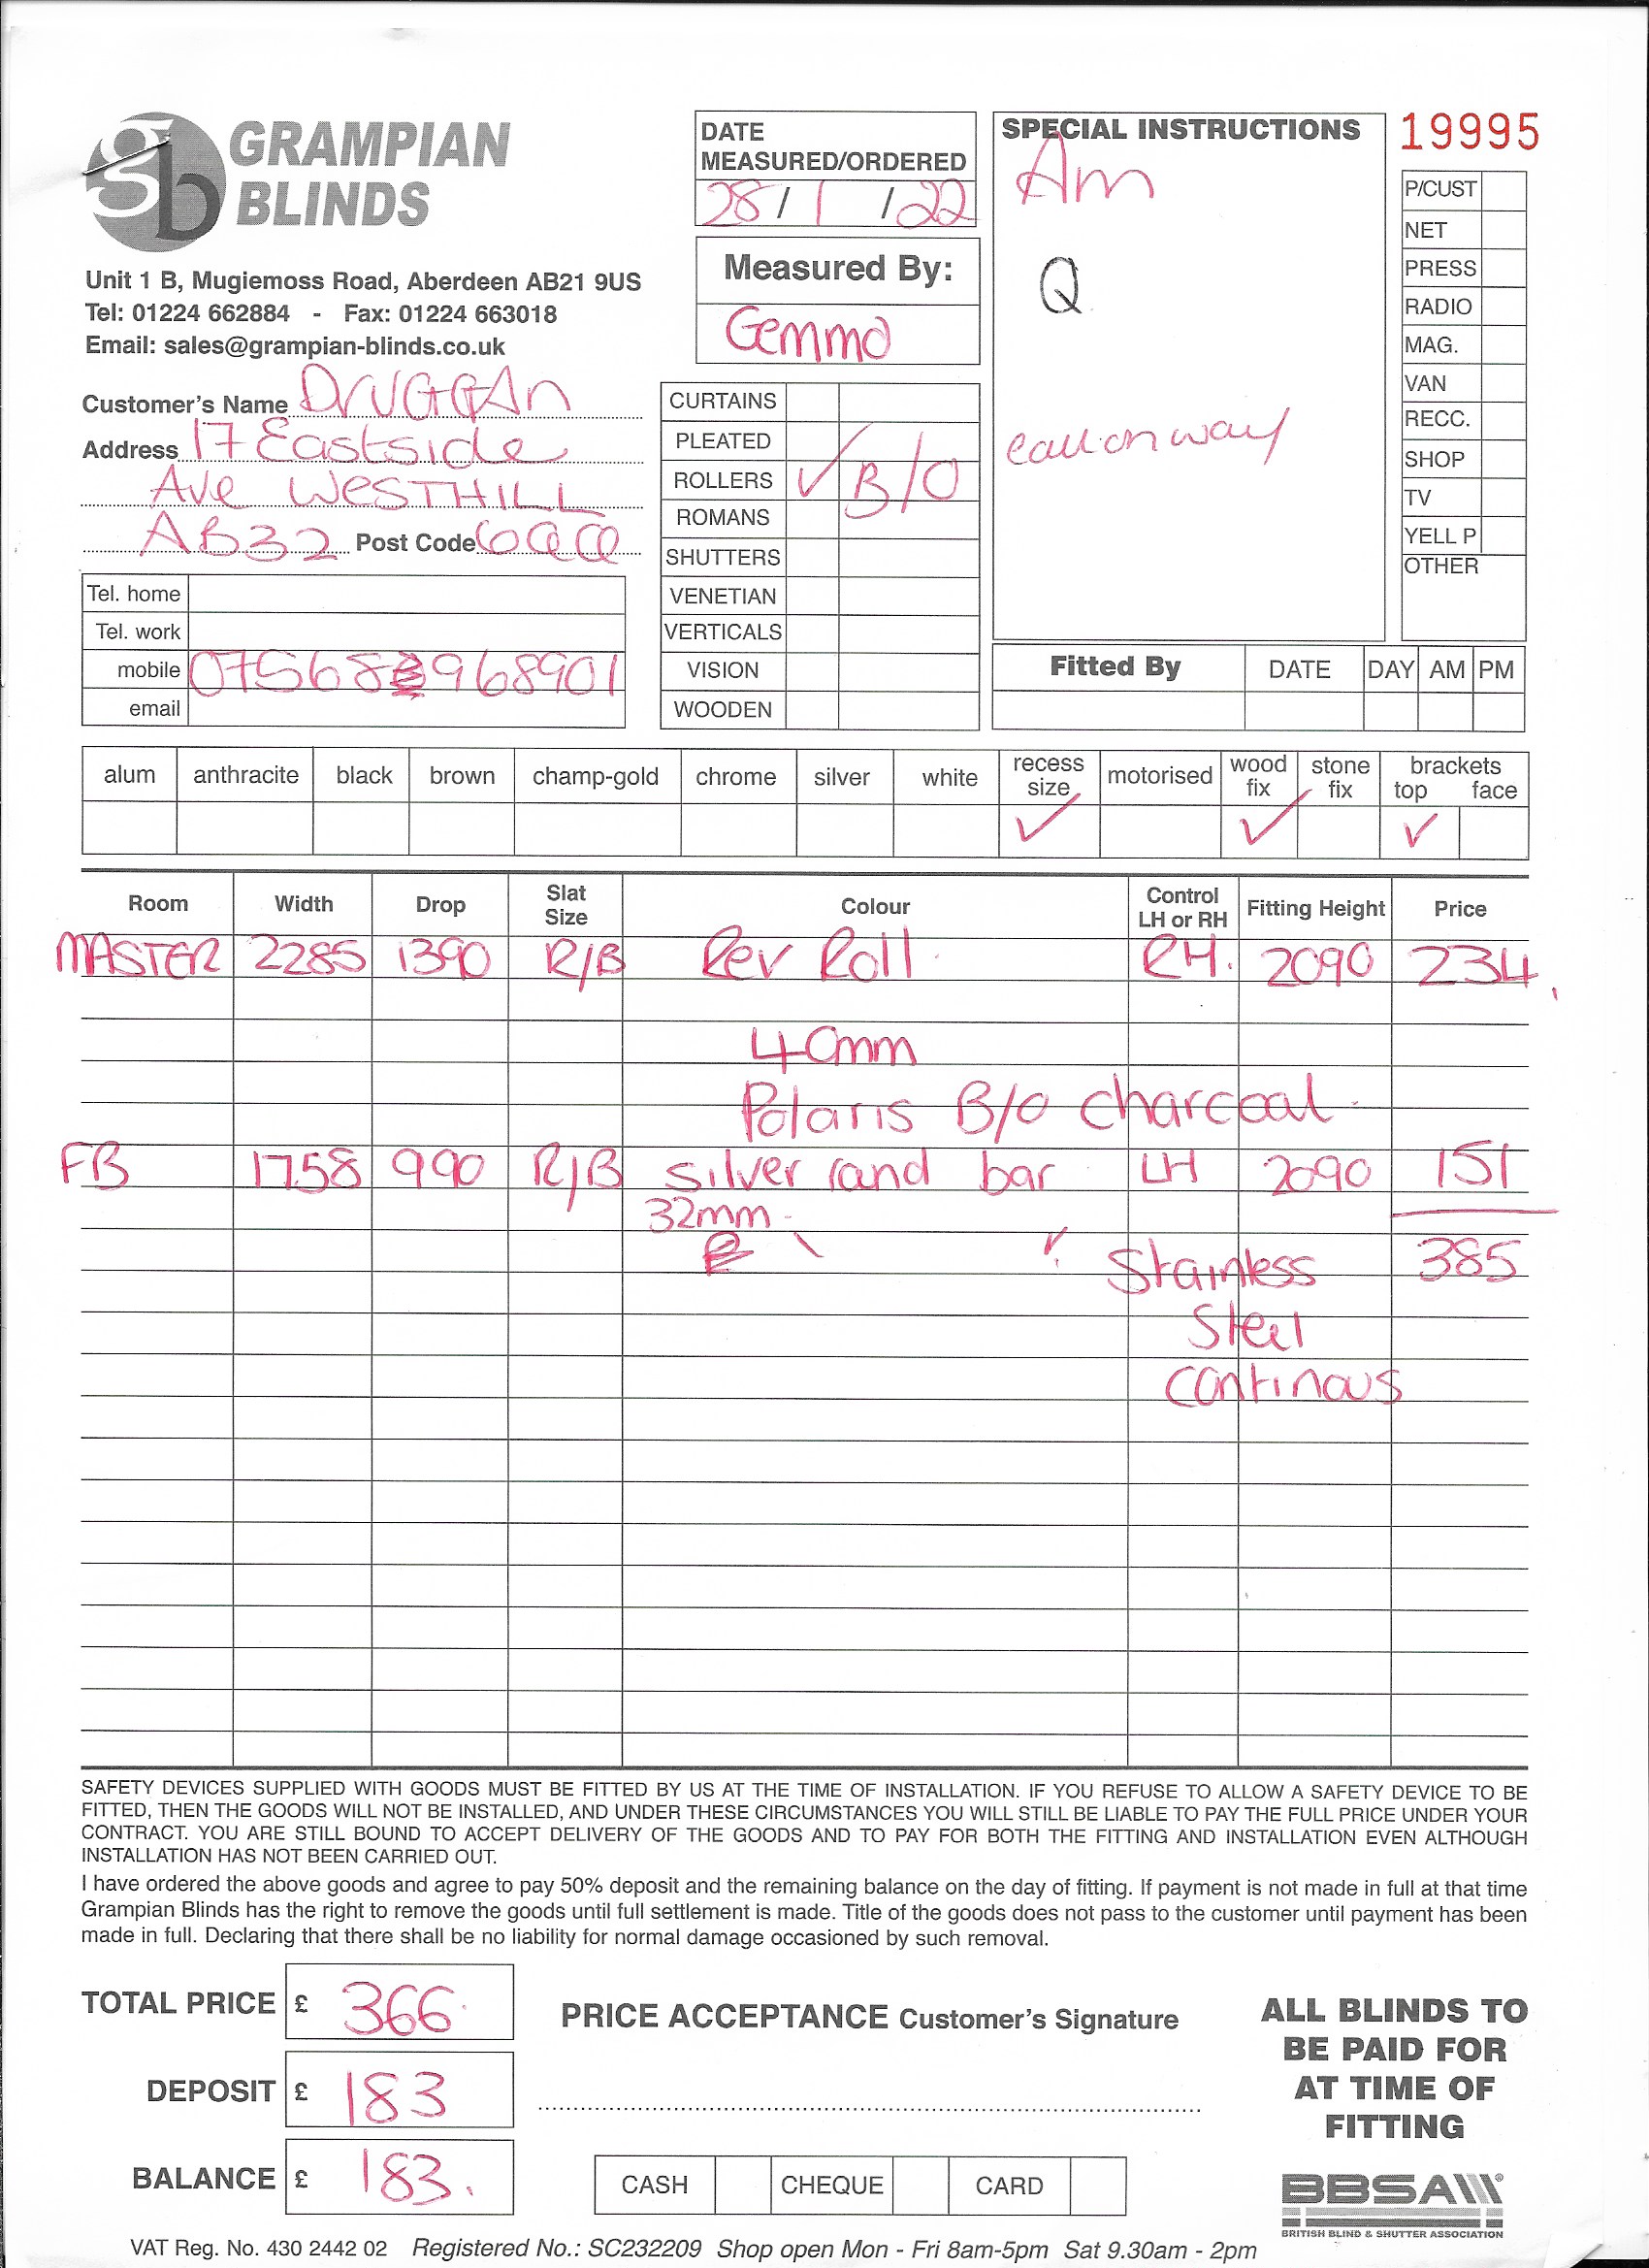 gb GRAMPIAN
BLINDS
Unit 1 B, Mugiemoss Road, Aberdeen AB21 9US
Tel: 01224 662884 - Fax: 01224 663018
Email: sales@grampian-blinds.co.uk
Customer's Name DRUGGAN
Address 17 Eastside
Ave WESTHILL
AB32 Post Code 6QQ
Tel. home
Tel. work
mobile 07568 968901
email
DATE
MEASURED/ORDERED
28 / 1 / 22
Measured By:
Gemma
CURTAINS
PLEATED
ROLLERS ✓ B/O
ROMANS
SHUTTERS
VENETIAN
VERTICALS
VISION
WOODEN
SPECIAL INSTRUCTIONS
Am
Q
call on way
19995
P/CUST
NET
PRESS
RADIO
MAG.
VAN
RECC.
SHOP
TV
YELL P
OTHER
Fitted By DATE DAY AM PM
alum anthracite black brown champ-gold chrome silver white recess size motorised wood fix stone fix brackets top face
✓ ✓ ✓
Room Width Drop Slat Size Colour Control LH or RH Fitting Height Price
MASTER 2285 1390 R/B Rev Roll. RH. 2090 234
40mm
Polaris B/O charcoal
FB 1758 990 R/B silver rand bar LH 2090 151
32mm
385
Stainless
Steel
continous
SAFETY DEVICES SUPPLIED WITH GOODS MUST BE FITTED BY US AT THE TIME OF INSTALLATION. IF YOU REFUSE TO ALLOW A SAFETY DEVICE TO BE
FITTED, THEN THE GOODS WILL NOT BE INSTALLED, AND UNDER THESE CIRCUMSTANCES YOU WILL STILL BE LIABLE TO PAY THE FULL PRICE UNDER YOUR
CONTRACT. YOU ARE STILL BOUND TO ACCEPT DELIVERY OF THE GOODS AND TO PAY FOR BOTH THE FITTING AND INSTALLATION EVEN ALTHOUGH
INSTALLATION HAS NOT BEEN CARRIED OUT.
I have ordered the above goods and agree to pay 50% deposit and the remaining balance on the day of fitting. If payment is not made in full at that time
Grampian Blinds has the right to remove the goods until full settlement is made. Title of the goods does not pass to the customer until payment has been
made in full. Declaring that there shall be no liability for normal damage occasioned by such removal.
TOTAL PRICE £ 366.
DEPOSIT £ 183
BALANCE £ 183.
PRICE ACCEPTANCE Customer's Signature
CASH CHEQUE CARD
ALL BLINDS TO
BE PAID FOR
AT TIME OF
FITTING
BBSA
BRITISH BLIND & SHUTTER ASSOCIATION
VAT Reg. No. 430 2442 02 Registered No.: SC232209 Shop open Mon - Fri 8am-5pm Sat 9.30am - 2pm